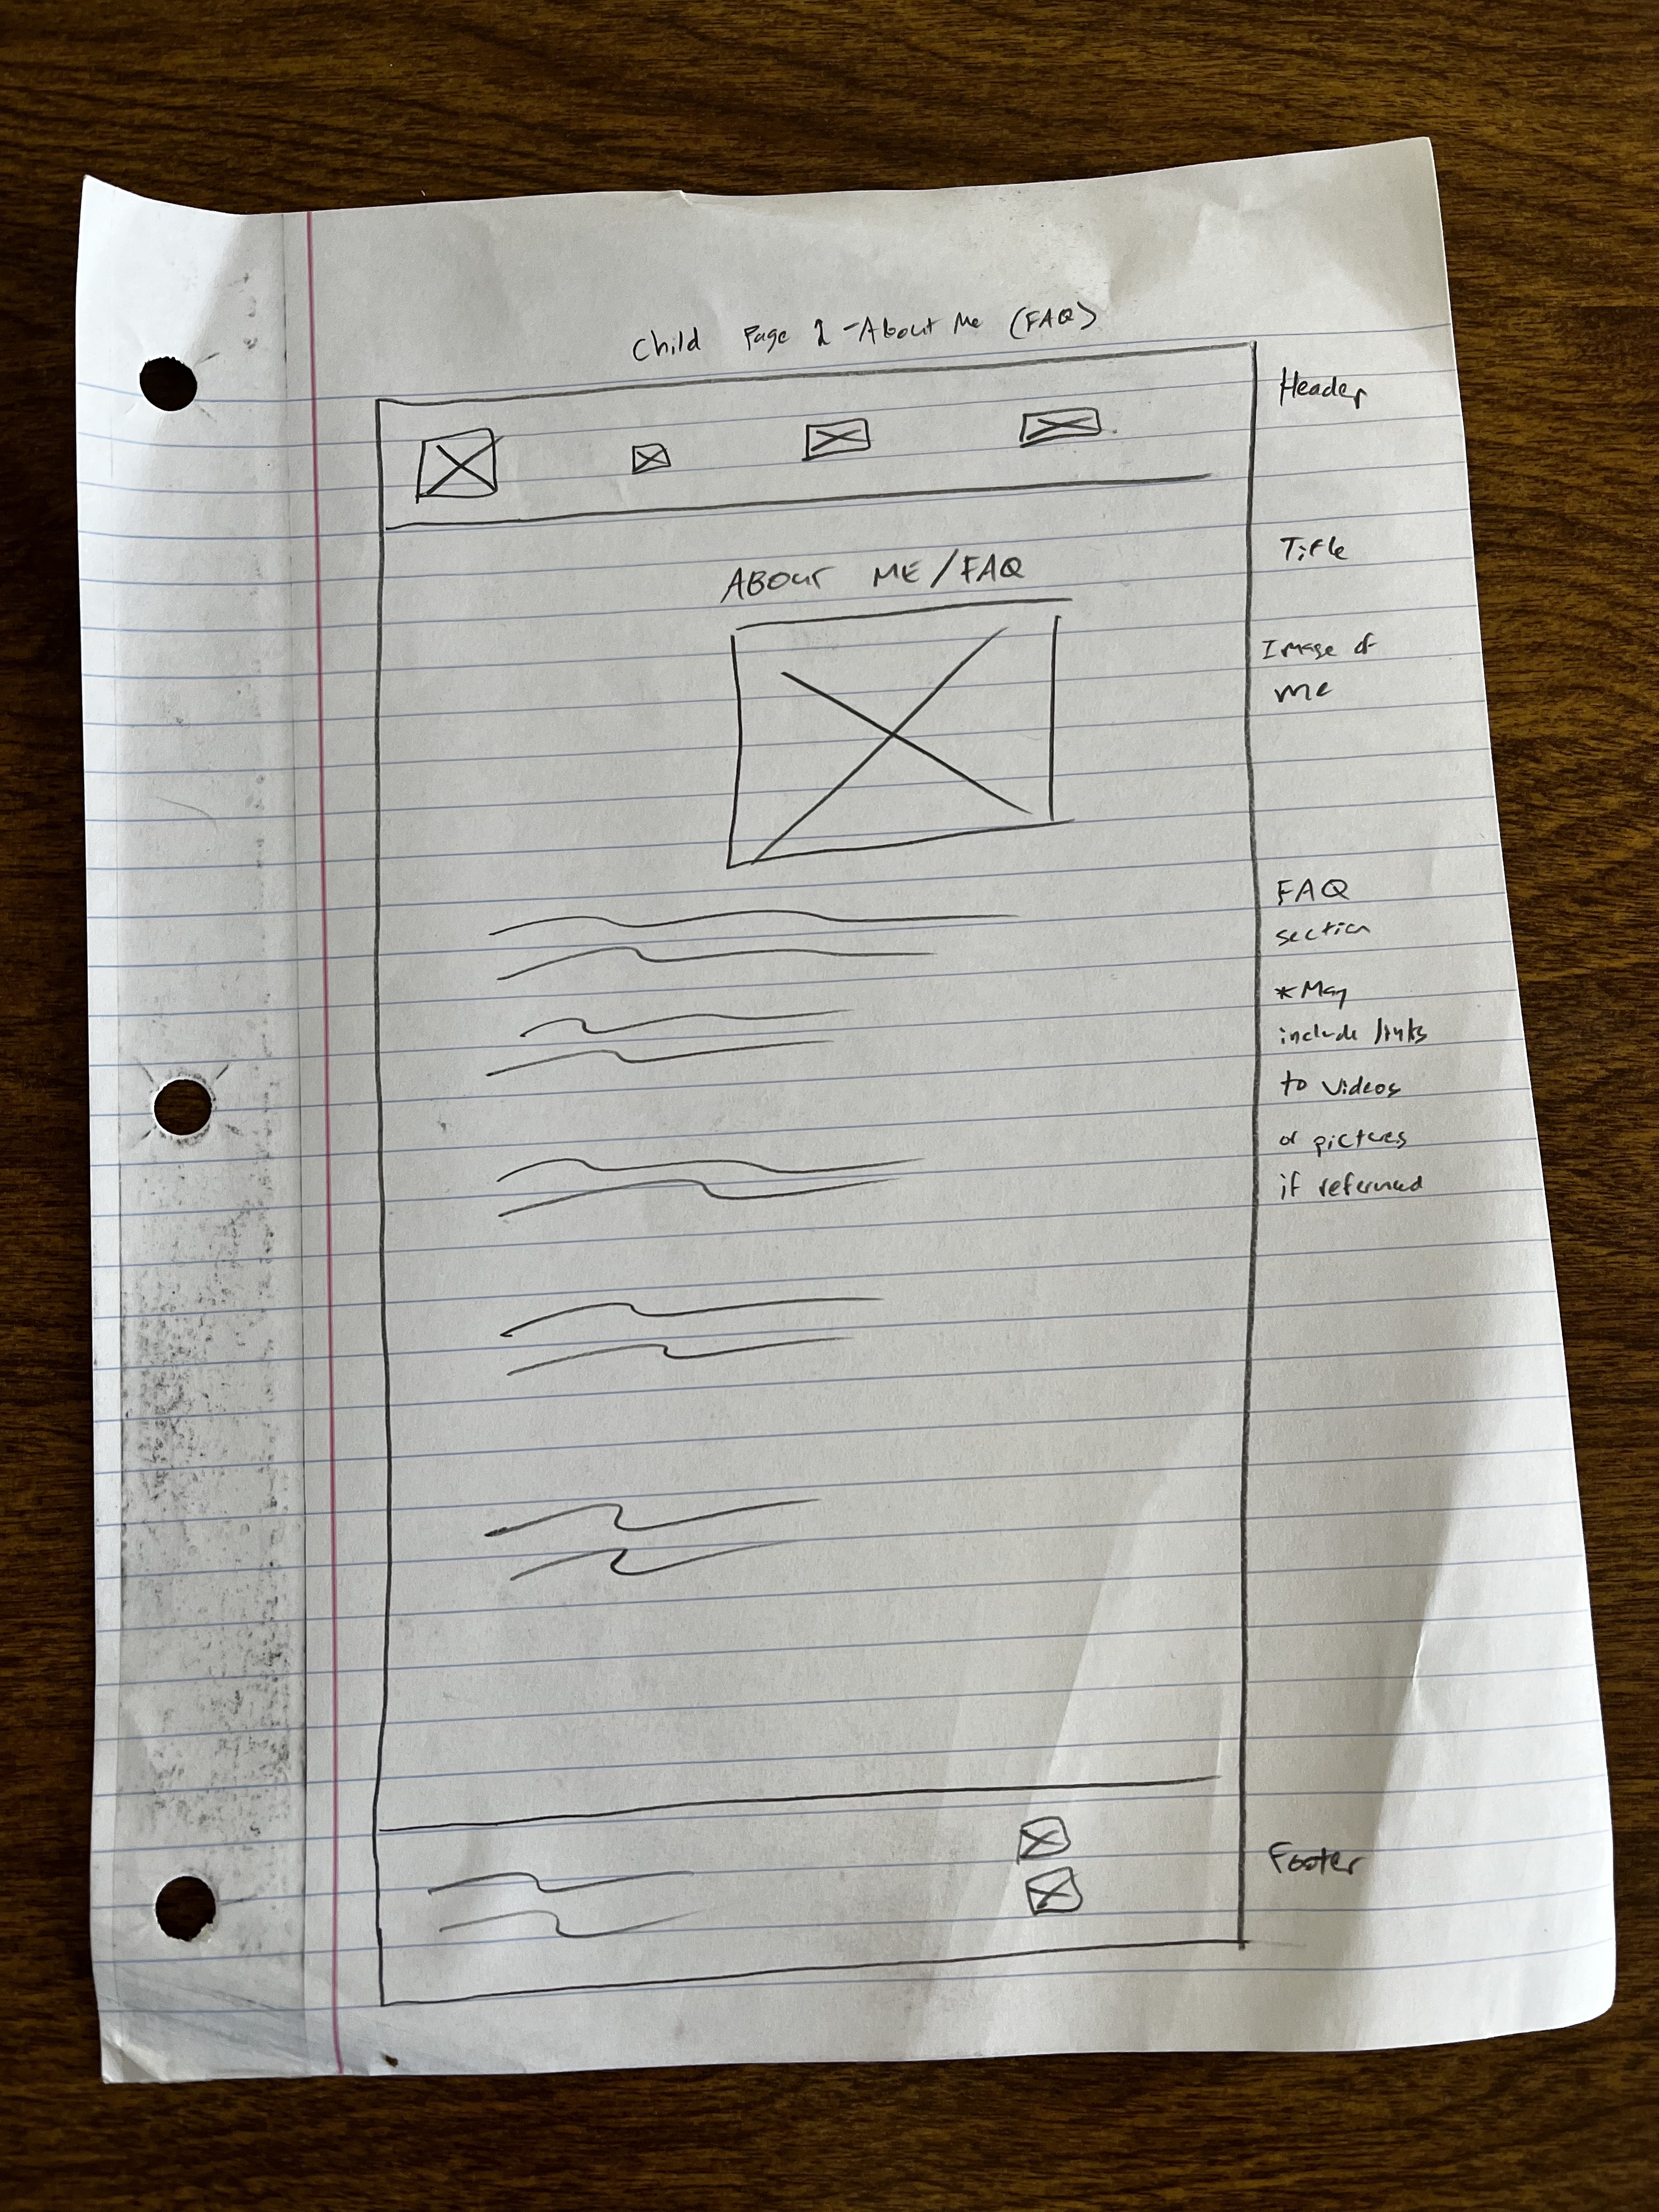 Child Page 1 - About Me (FAQ)
Header
Title
ABOUT ME/FAQ
Image of
me
FAQ
section
*May
include links
to videos
or pictures
if referenced
Footer